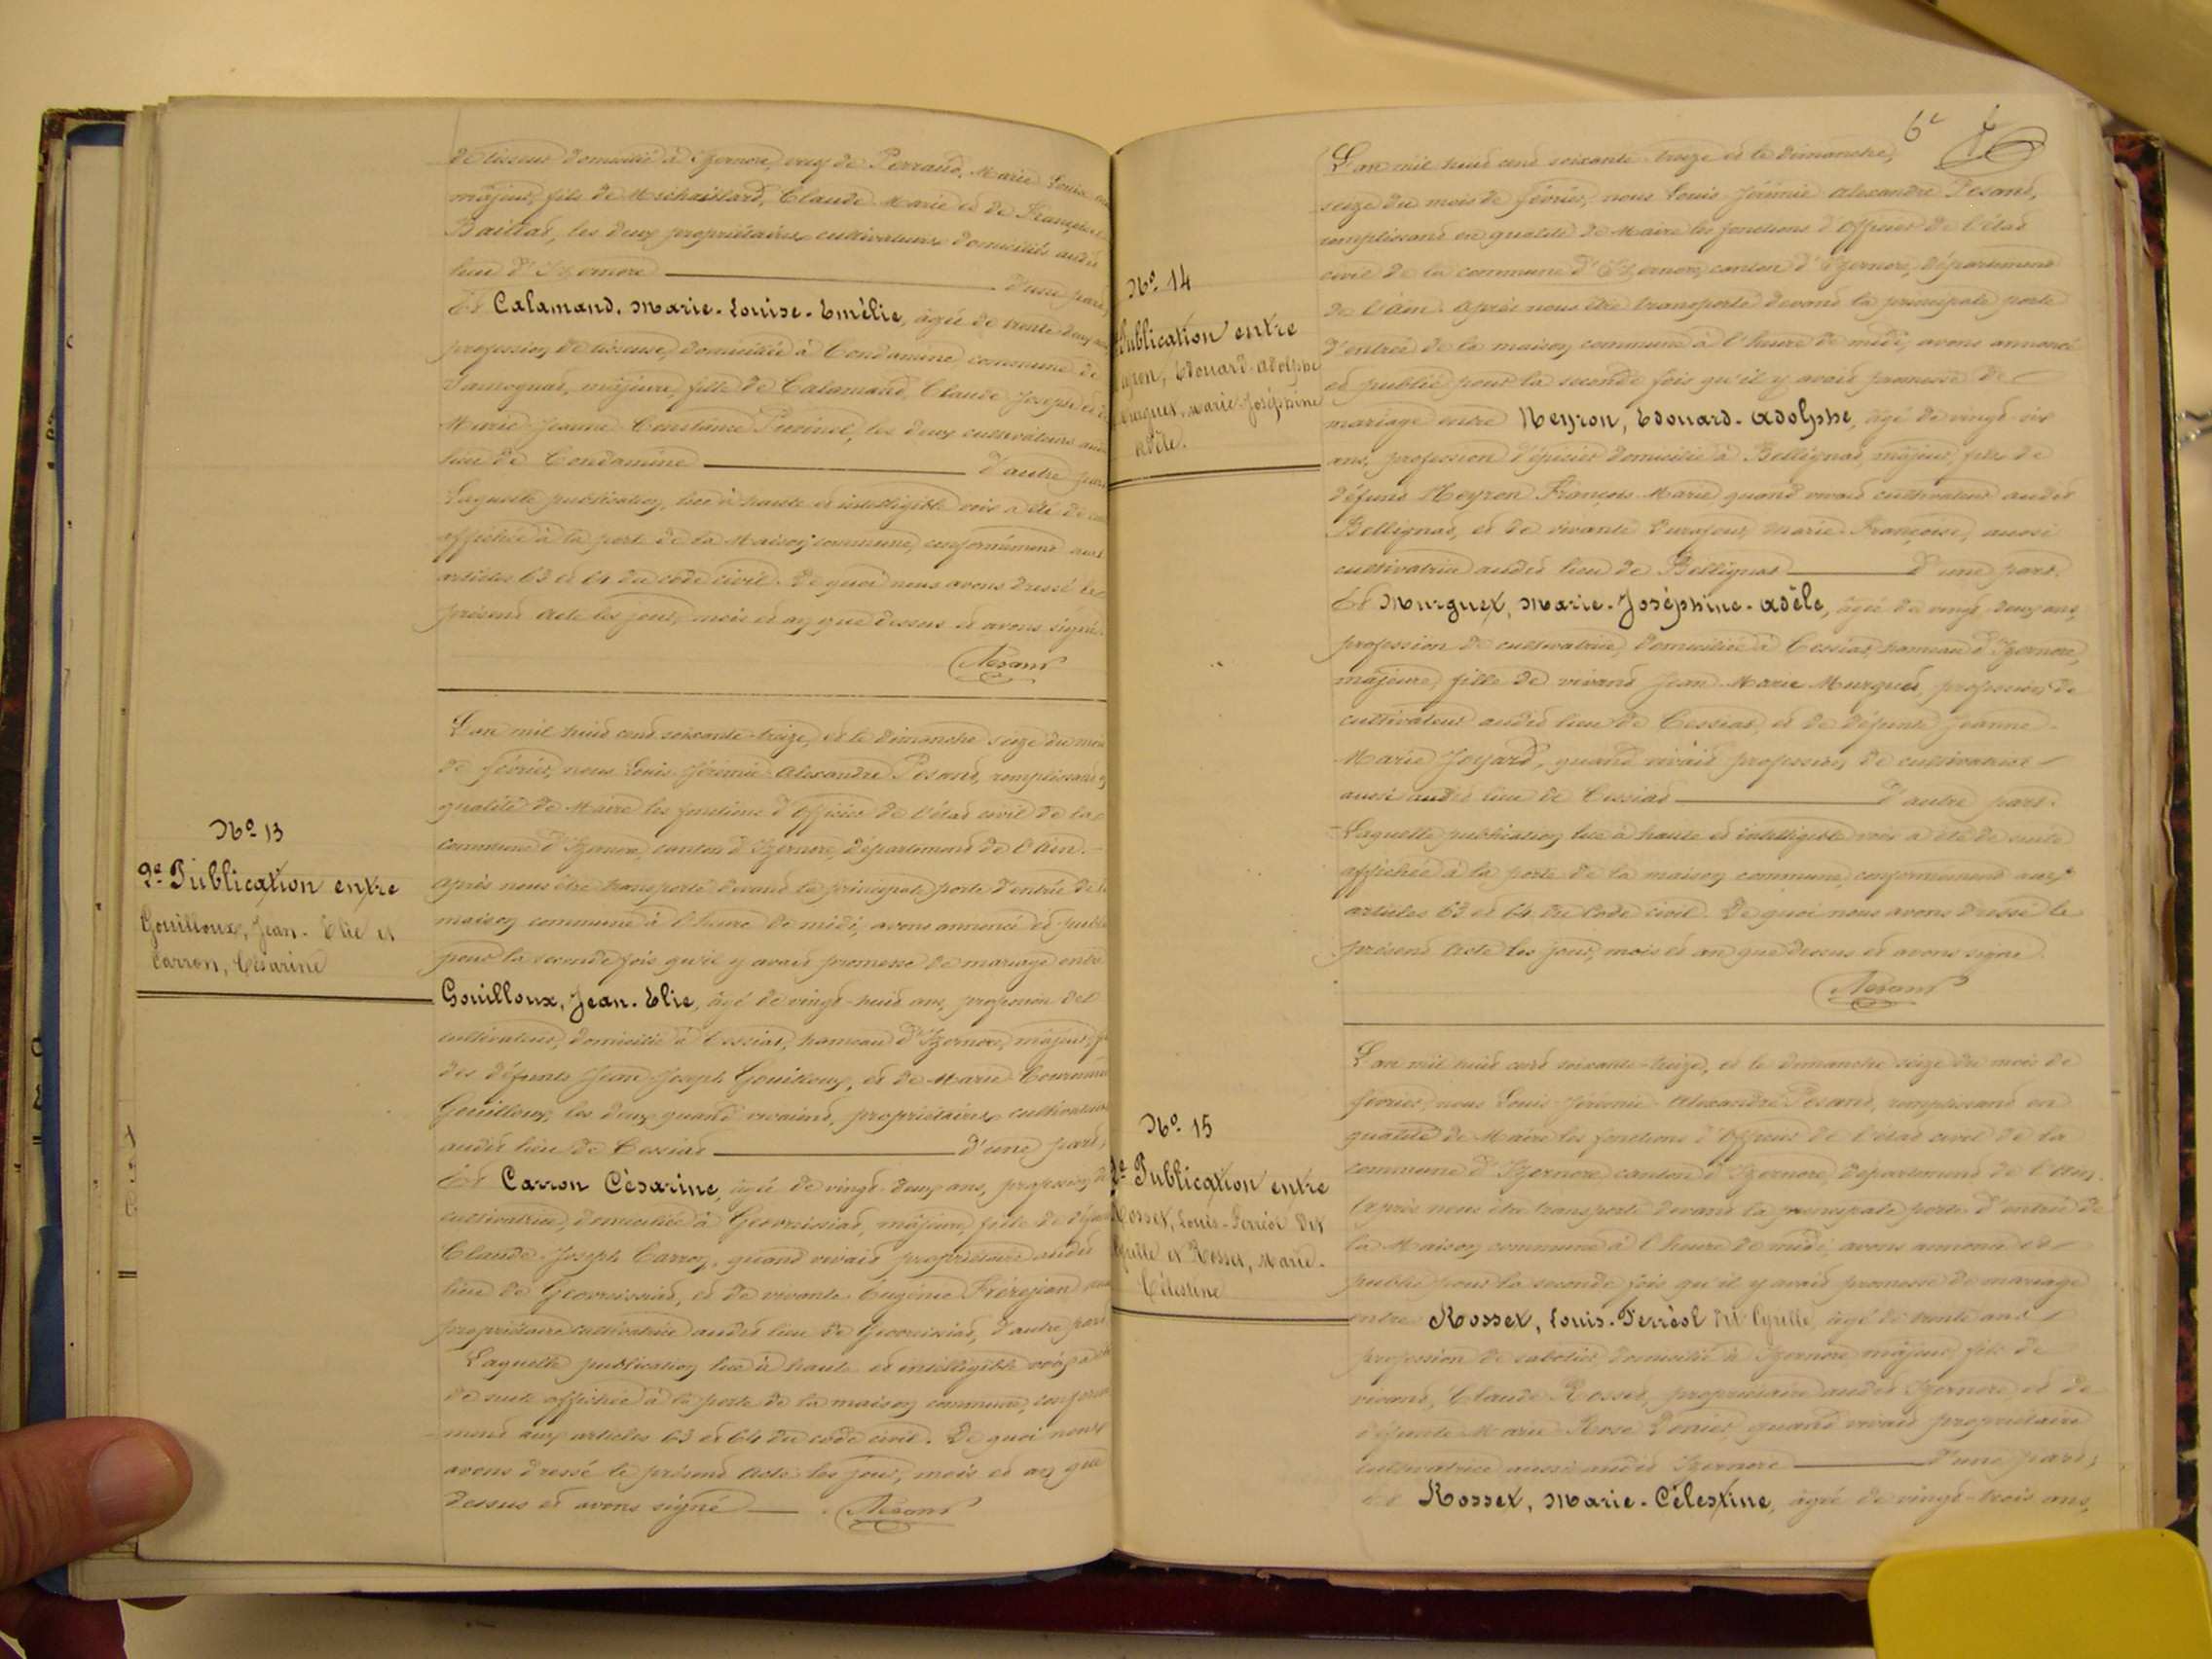 de tisseur domicilié à Izernore, veuf de Perraud, Marie Louise
majeur, fils de Michaillard, Claude Marie et de Françoise
Baillat, les deux propriétaires cultivateurs domiciliés audit
lieu d'Izernore d'une part,
Et Calamand, Marie-Louise-Emélie, âgée de trente deux ans
profession de tisseuse, domiciliée à Condamine, commune de
Samognat, majeure, fille de Calamand, Claude Joseph et de
Marie Jeanne Constance, les deux cultivateurs
lieu de Condamine d'autre part
Laquelle publication, lue à haute et intelligible voix a été de
affichée à la porte de la Maison commune, conformément aux
articles 63 et 64 du code civil. De quoi nous avons dressé le
présent acte les jour, mois et an que dessus et avons signé.
Pesant
No. 13
2e Publication entre
Gouilloux, Jean-Elie et
Carron, Césarine
L'an mil huit cent soixante-treize, et le dimanche seize du mois
de février, nous Louis Jérémie Alexandre Pesant, remplissant en
qualité de Maire les fonctions d'officier de l'état civil de la
commune d'Izernore, canton d'Izernore, département de l'Ain.
Après nous être transporté devant la principale porte d'entrée de la
maison commune à l'heure de midi, avons annoncé et publié
pour la seconde fois qu'il y avait promesse de mariage entre
Gouilloux, Jean-Elie, âgé de vingt-huit ans, profession de
cultivateur, domicilié à Cessiat, hameau d'Izernore, majeur,
des défunts Jean Joseph Gouilloux, et de Marie
Gouilloux, les deux quand vivaient, propriétaires cultivateurs
audit lieu de Cessiat d'une part,
Et Carron Césarine, âgée de vingt-deux ans, profession de
cultivatrice, domiciliée à Geovreissiat, majeure, fille de défunt
Claude-Joseph Carron, quand vivait propriétaire audit
lieu de Geovreissiat, et de vivante Eugénie Frérejean
propriétaire cultivatrice audit lieu de Geovreissiat, d'autre part
Laquelle publication lue à haute et intelligible voix a été
de suite affichée à la porte de la maison commune, conformé
ment aux articles 63 et 64 du code civil. De quoi nous
avons dressé le présent acte les jour, mois et an que
dessus et avons signé Pesant
6e
No. 14
Publication entre
Neyron, Edouard-Adolphe
Murguet, Marie-Joséphine
Adèle.
L'an mil huit cent soixante-treize et le dimanche,
seize du mois de février, nous Louis Jérémie Alexandre Pesant,
remplissant en qualité de Maire les fonctions d'officier de l'état
civil de la commune d'Izernore, canton d'Izernore, département
de l'Ain. Après nous être transporté devant la principale porte
d'entrée de la maison commune à l'heure de midi, avons annoncé
et publié pour la seconde fois qu'il y avait promesse de
mariage entre Neyron, Edouard-Adolphe, âgé de vingt-six
ans, profession d'épicier domicilié à Bellignat, majeur, fils de
défunt Neyron François-Marie, quand vivait cultivateur audit
Bellignat, et de vivante Durafour, Marie Françoise, aussi
cultivatrice audit lieu de Bellignat d'une part.
Et Murguet, Marie-Joséphine-Adèle, âgée de vingt-deux ans,
profession de cultivatrice, domiciliée à Cessiat, hameau d'Izernore,
majeure, fille de vivant Jean Marie Murguet, profession de
cultivateur audit lieu de Cessiat, et de défunte Jeanne-
Marie Joyard, quand vivait profession de cultivatrice
aussi audit lieu de Cessiat d'autre part.
Laquelle publication lue à haute et intelligible voix a été de suite
affichée à la porte de la maison commune, conformément aux
articles 63 et 64 du Code civil. De quoi nous avons dressé le
présent acte les jour, mois et an que dessus et avons signé
Pesant
No. 15
2e Publication entre
Rosset, Louis-Ferréol dit
Cyrille et Rosset, Marie-
Célestine
L'an mil huit cent soixante-treize, et le dimanche seize du mois de
février, nous Louis Jérémie Alexandre Pesant, remplissant en
qualité de Maire les fonctions d'officier de l'état civil de la
commune d'Izernore canton d'Izernore, département de l'Ain.
Après nous être transporté devant la principale porte d'entrée de
la Maison commune à l'heure de midi, avons annoncé et
publié pour la seconde fois qu'il y avait promesse de mariage
entre Rosset, Louis-Ferréol dit Cyrille, âgé de trente ans
profession de sabotier domicilié à Izernore majeur, fils de
vivant, Claude Rosset, propriétaire audit Izernore, et de
défunte Marie Rose quand vivait propriétaire
cultivatrice aussi audit Izernore d'une part,
Et Rosset, Marie-Célestine, âgée de vingt-trois ans,